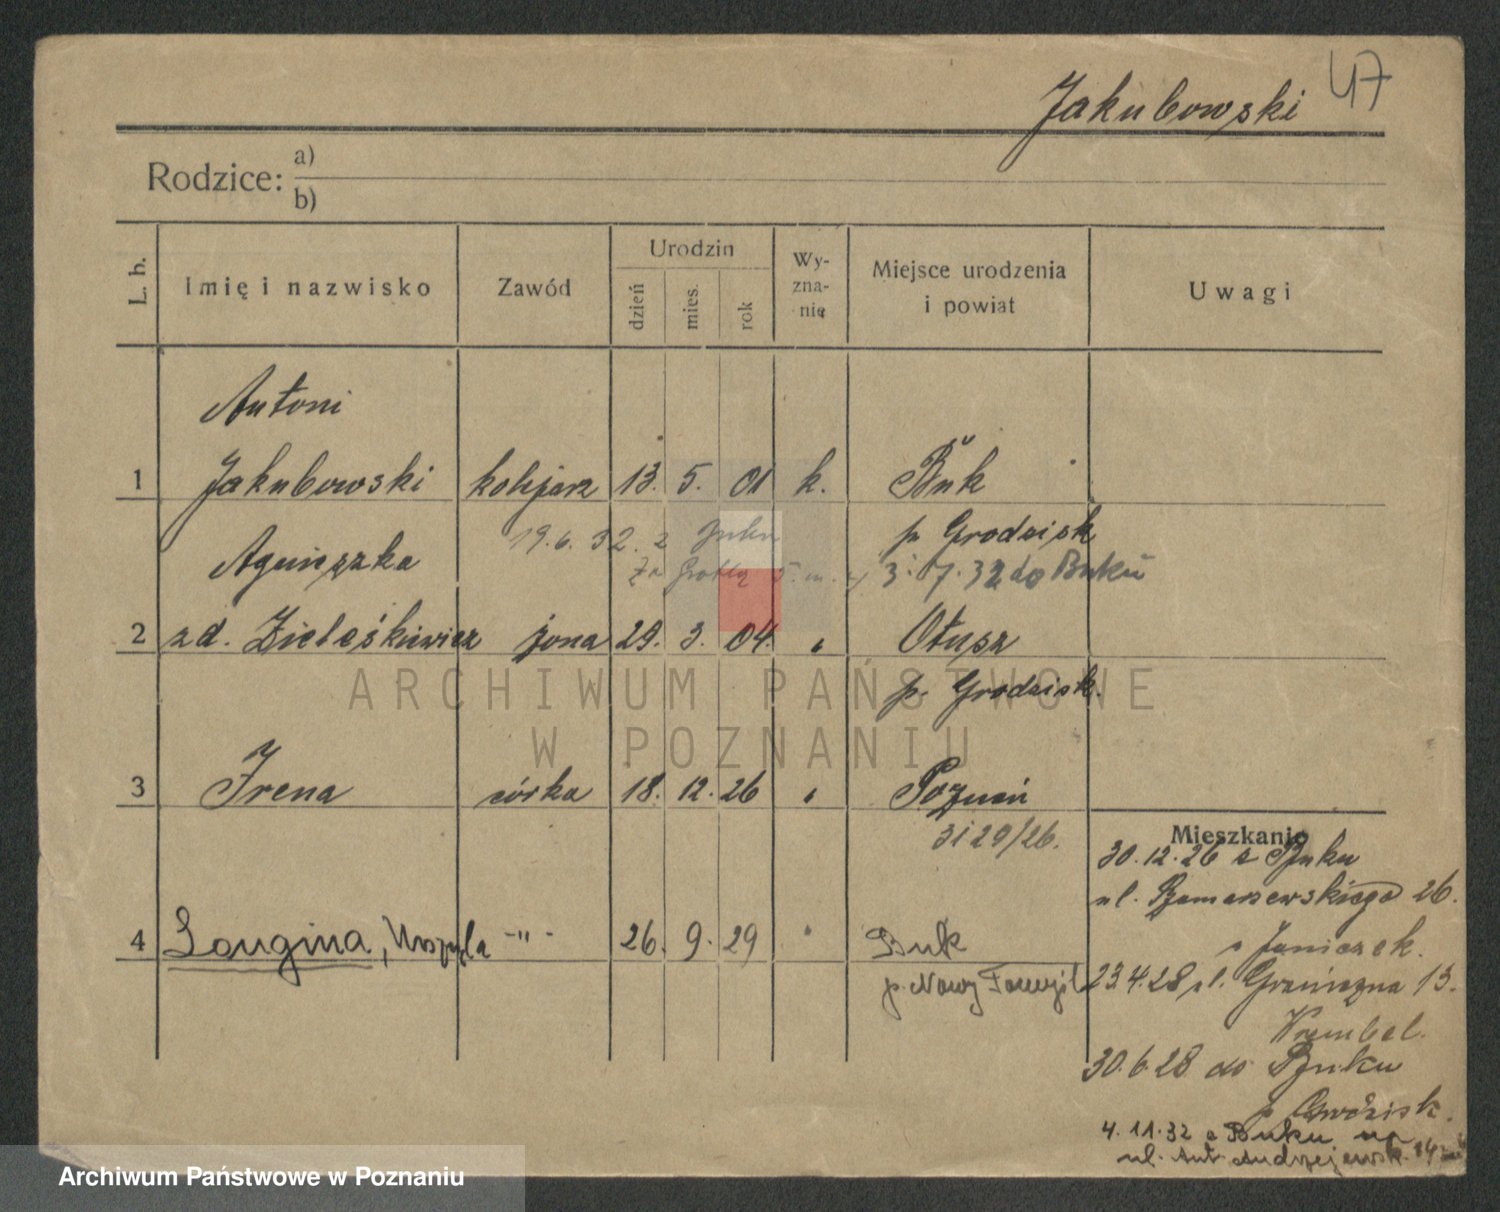 47
Jakubowski
Rodzice: a)
b)
L. b.
Imię i nazwisko
Zawód
Urodzin
dzień
mies.
rok
Wy-
zna-
nie
Miejsce urodzenia
i powiat
Uwagi
Antoni
1 Jakubowski kolejarz 13. 5. 01 k. Buk
p. Grodzisk
19.6.32. z Buku
3.7.32 do Buku
Agnieszka
2 zd. Zieleśkiewicz żona 29. 3. 04. " Otusz
p. Grodzisk.
3 Irena córka 18. 12. 26 " Poznań
3129/26.
4 Longina, Urszula -"- 26. 9. 29 " Buk
p. Nowy Tomyśl
Mieszkanie
30.12.26 z Buku
ul. Szamarzewskiego 26.
Janiczek.
23.4.28 ul. Graniczna 13.
Krembel.
30.6.28 do Buku
p. Grodzisk.
4.11.32 z Buku na
ul. Ant. Andrzejewsk. 14
ARCHIWUM PAŃSTWOWE
W POZNANIU
Archiwum Państwowe w Poznaniu